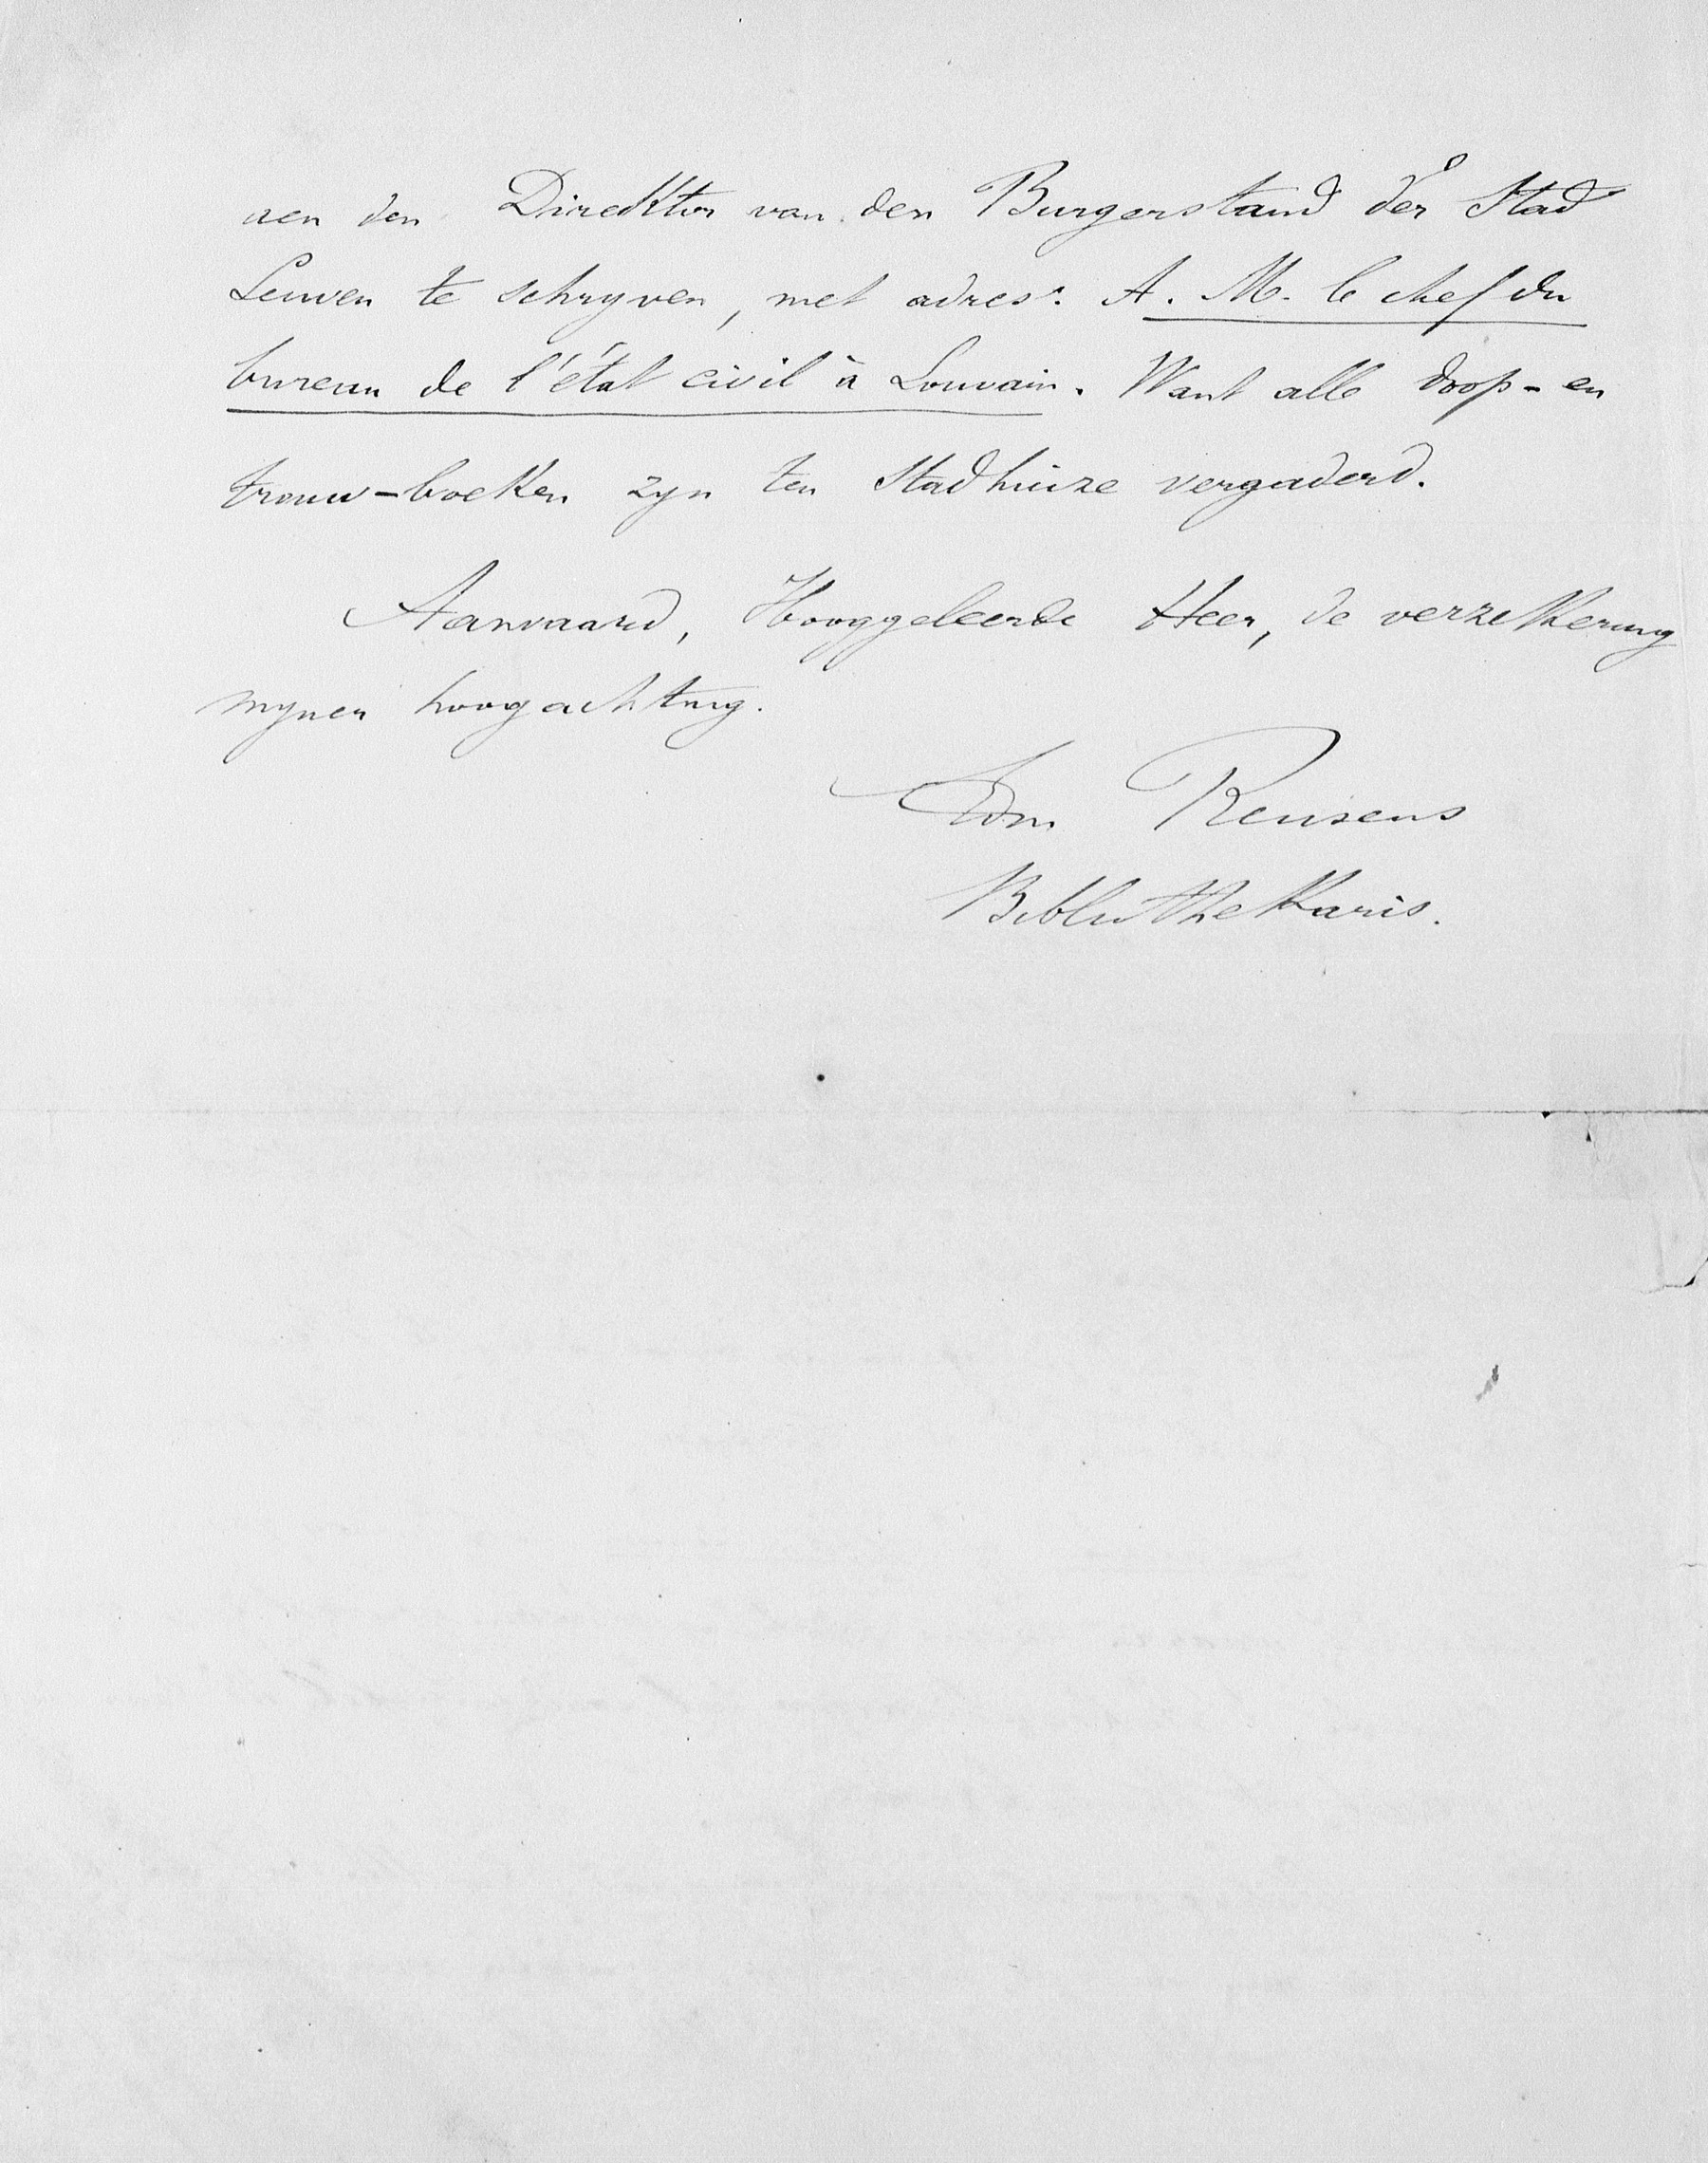 aen den Direktor van den Burgerstand der Stad
Leuven te schryven, met adres: A. M. le chef du
bureau de l'état civil à Louvain. Want alle doop- en
trouw-boeken zyn ten Stadhuize vergaderd.
Aanvaard, Hooggeleerde Heer, de verzekering
myner hoogachting.
Edm Reusens
Bibliothekaris.